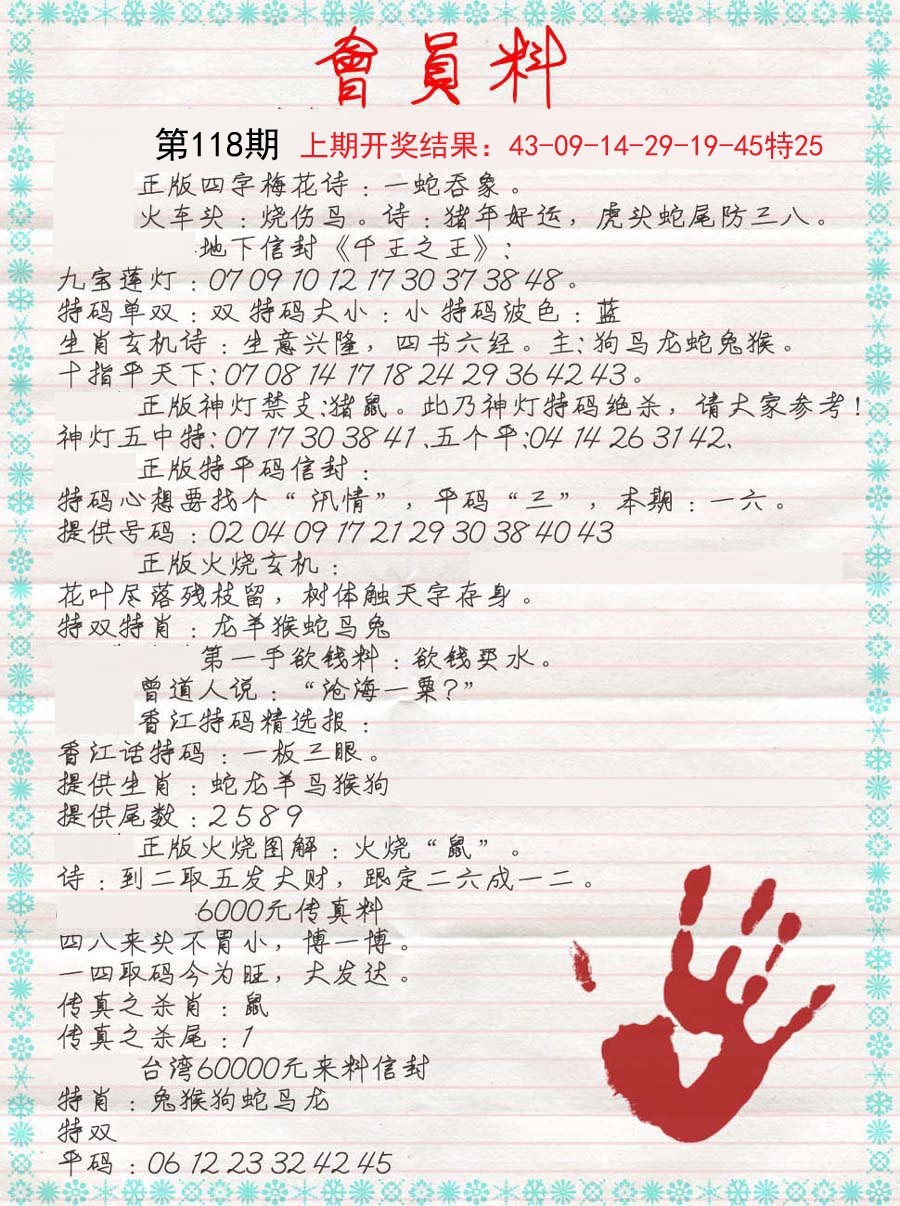 會員料
第118期 上期开奖结果：43-09-14-29-19-45特25
正版四字梅花诗：一蛇吞象。
火车头：烧伤鸟。诗：猪年好运，虎头蛇尾防三八。
地下信封《千王之王》：
九宝莲灯：07 09 10 12 17 30 37 38 48。
特码单双：双 特码大小：小 特码波色：蓝
生肖玄机诗：生意兴隆，四书六经。主：狗马龙蛇兔猴。
十指平天下：07 08 14 17 18 24 29 36 42 43。
正版神灯禁支：猪鼠。此乃神灯特码绝杀，请大家参考！
神灯五中特：07 17 30 38 41、五个平：04 14 26 31 42、
正版特平码信封：
特码心想要找个“汛情”，平码“三”，本期：一六。
提供号码：02 04 09 17 21 29 30 38 40 43
正版火烧玄机：
花叶尽落残枝留，树体触天字存身。
特双特肖：龙羊猴蛇马兔
第一手欲钱料：欲钱买水。
曾道人说：“沧海一粟？”
香江特码精选报：
香江话特码：一板三眼。
提供生肖：蛇龙羊马猴狗
提供尾数：2 5 8 9
正版火烧图解：火烧“鼠”。
诗：到二取五发大财，跟定二六成一二。
6000元传真料
四八来头不胃小，博一博。
一四取码今为旺，大发达。
传真之杀肖：鼠
传真之杀尾：1
台湾60000元来料信封
特肖：兔猴狗蛇马龙
特双
平码：06 12 23 32 42 45